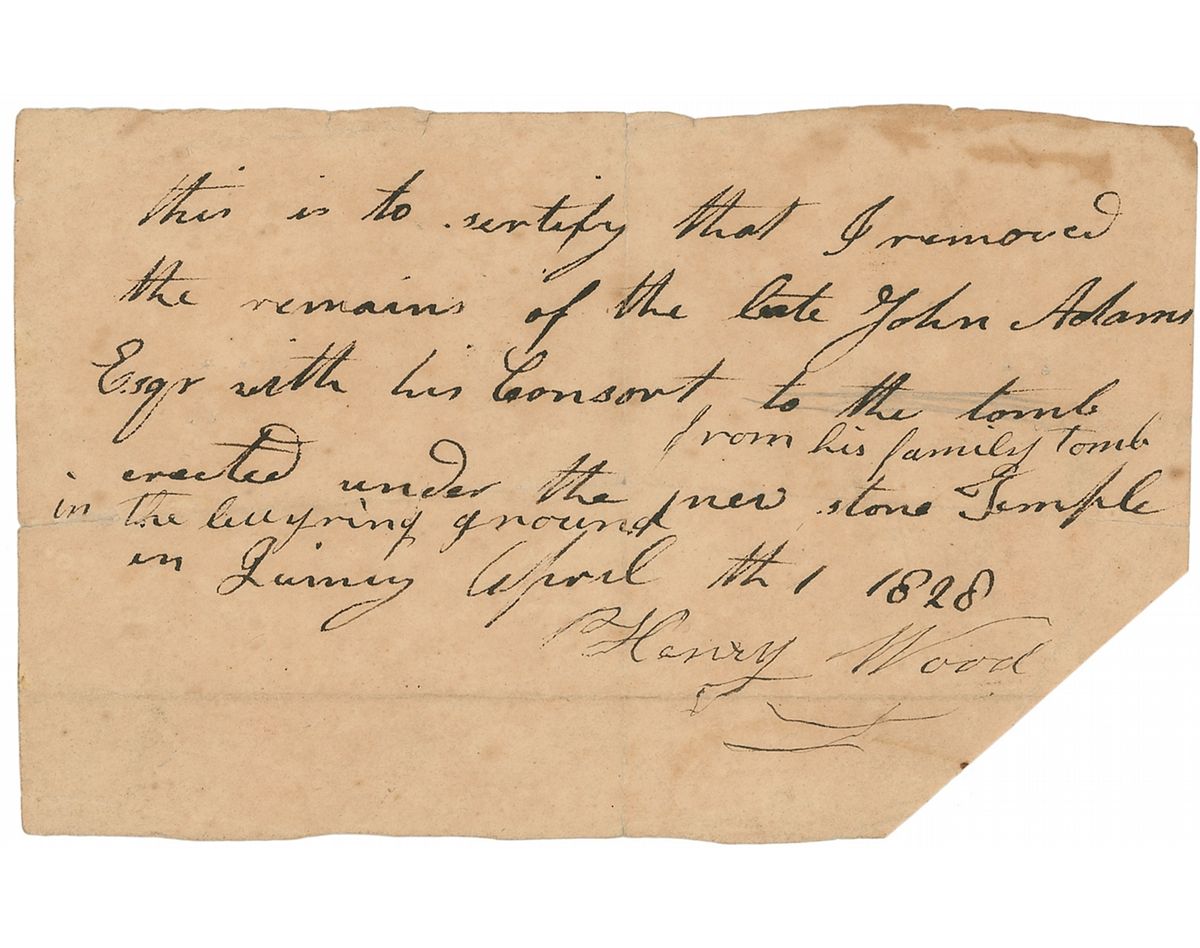 this is to sertify that I removed
the remains of the late John Adams
Esqr with his Consort to the tomb
from his family tomb
erected under the new stone Temple
in the buryring ground
in Quincy April th 1 1828
Henry Wood